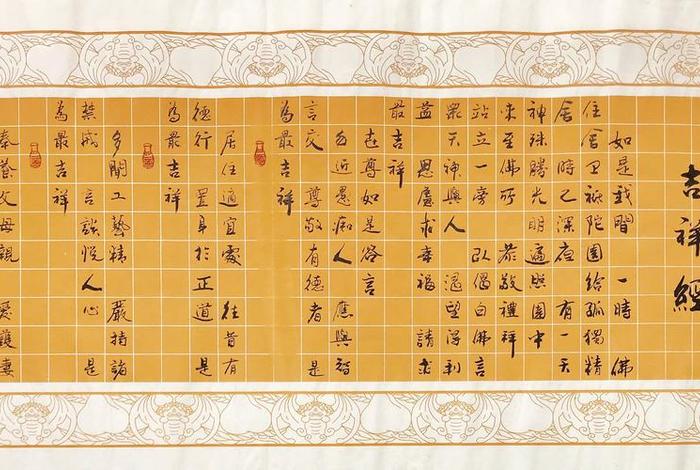 吉祥經
如是我聞 一時 佛
住舍卫祗陀園給孤獨精
舍 時已深夜 有一天
神 殊勝光明 遍照園中
來至佛所 恭敬禮拜
站立一旁 以偈白佛言
眾天神與人 渴望得利
益 思慮求幸福 請示
最吉祥
世尊如是答言
勿近愚痴人 應與智
者交 尊敬有德者 是
為最吉祥
居住適宜處 往昔有
德行 置身於正道 是
為最吉祥
多聞工藝精 嚴持諸
禁戒 言談悅人心 是
為最吉祥
奉養父母親 愛護妻